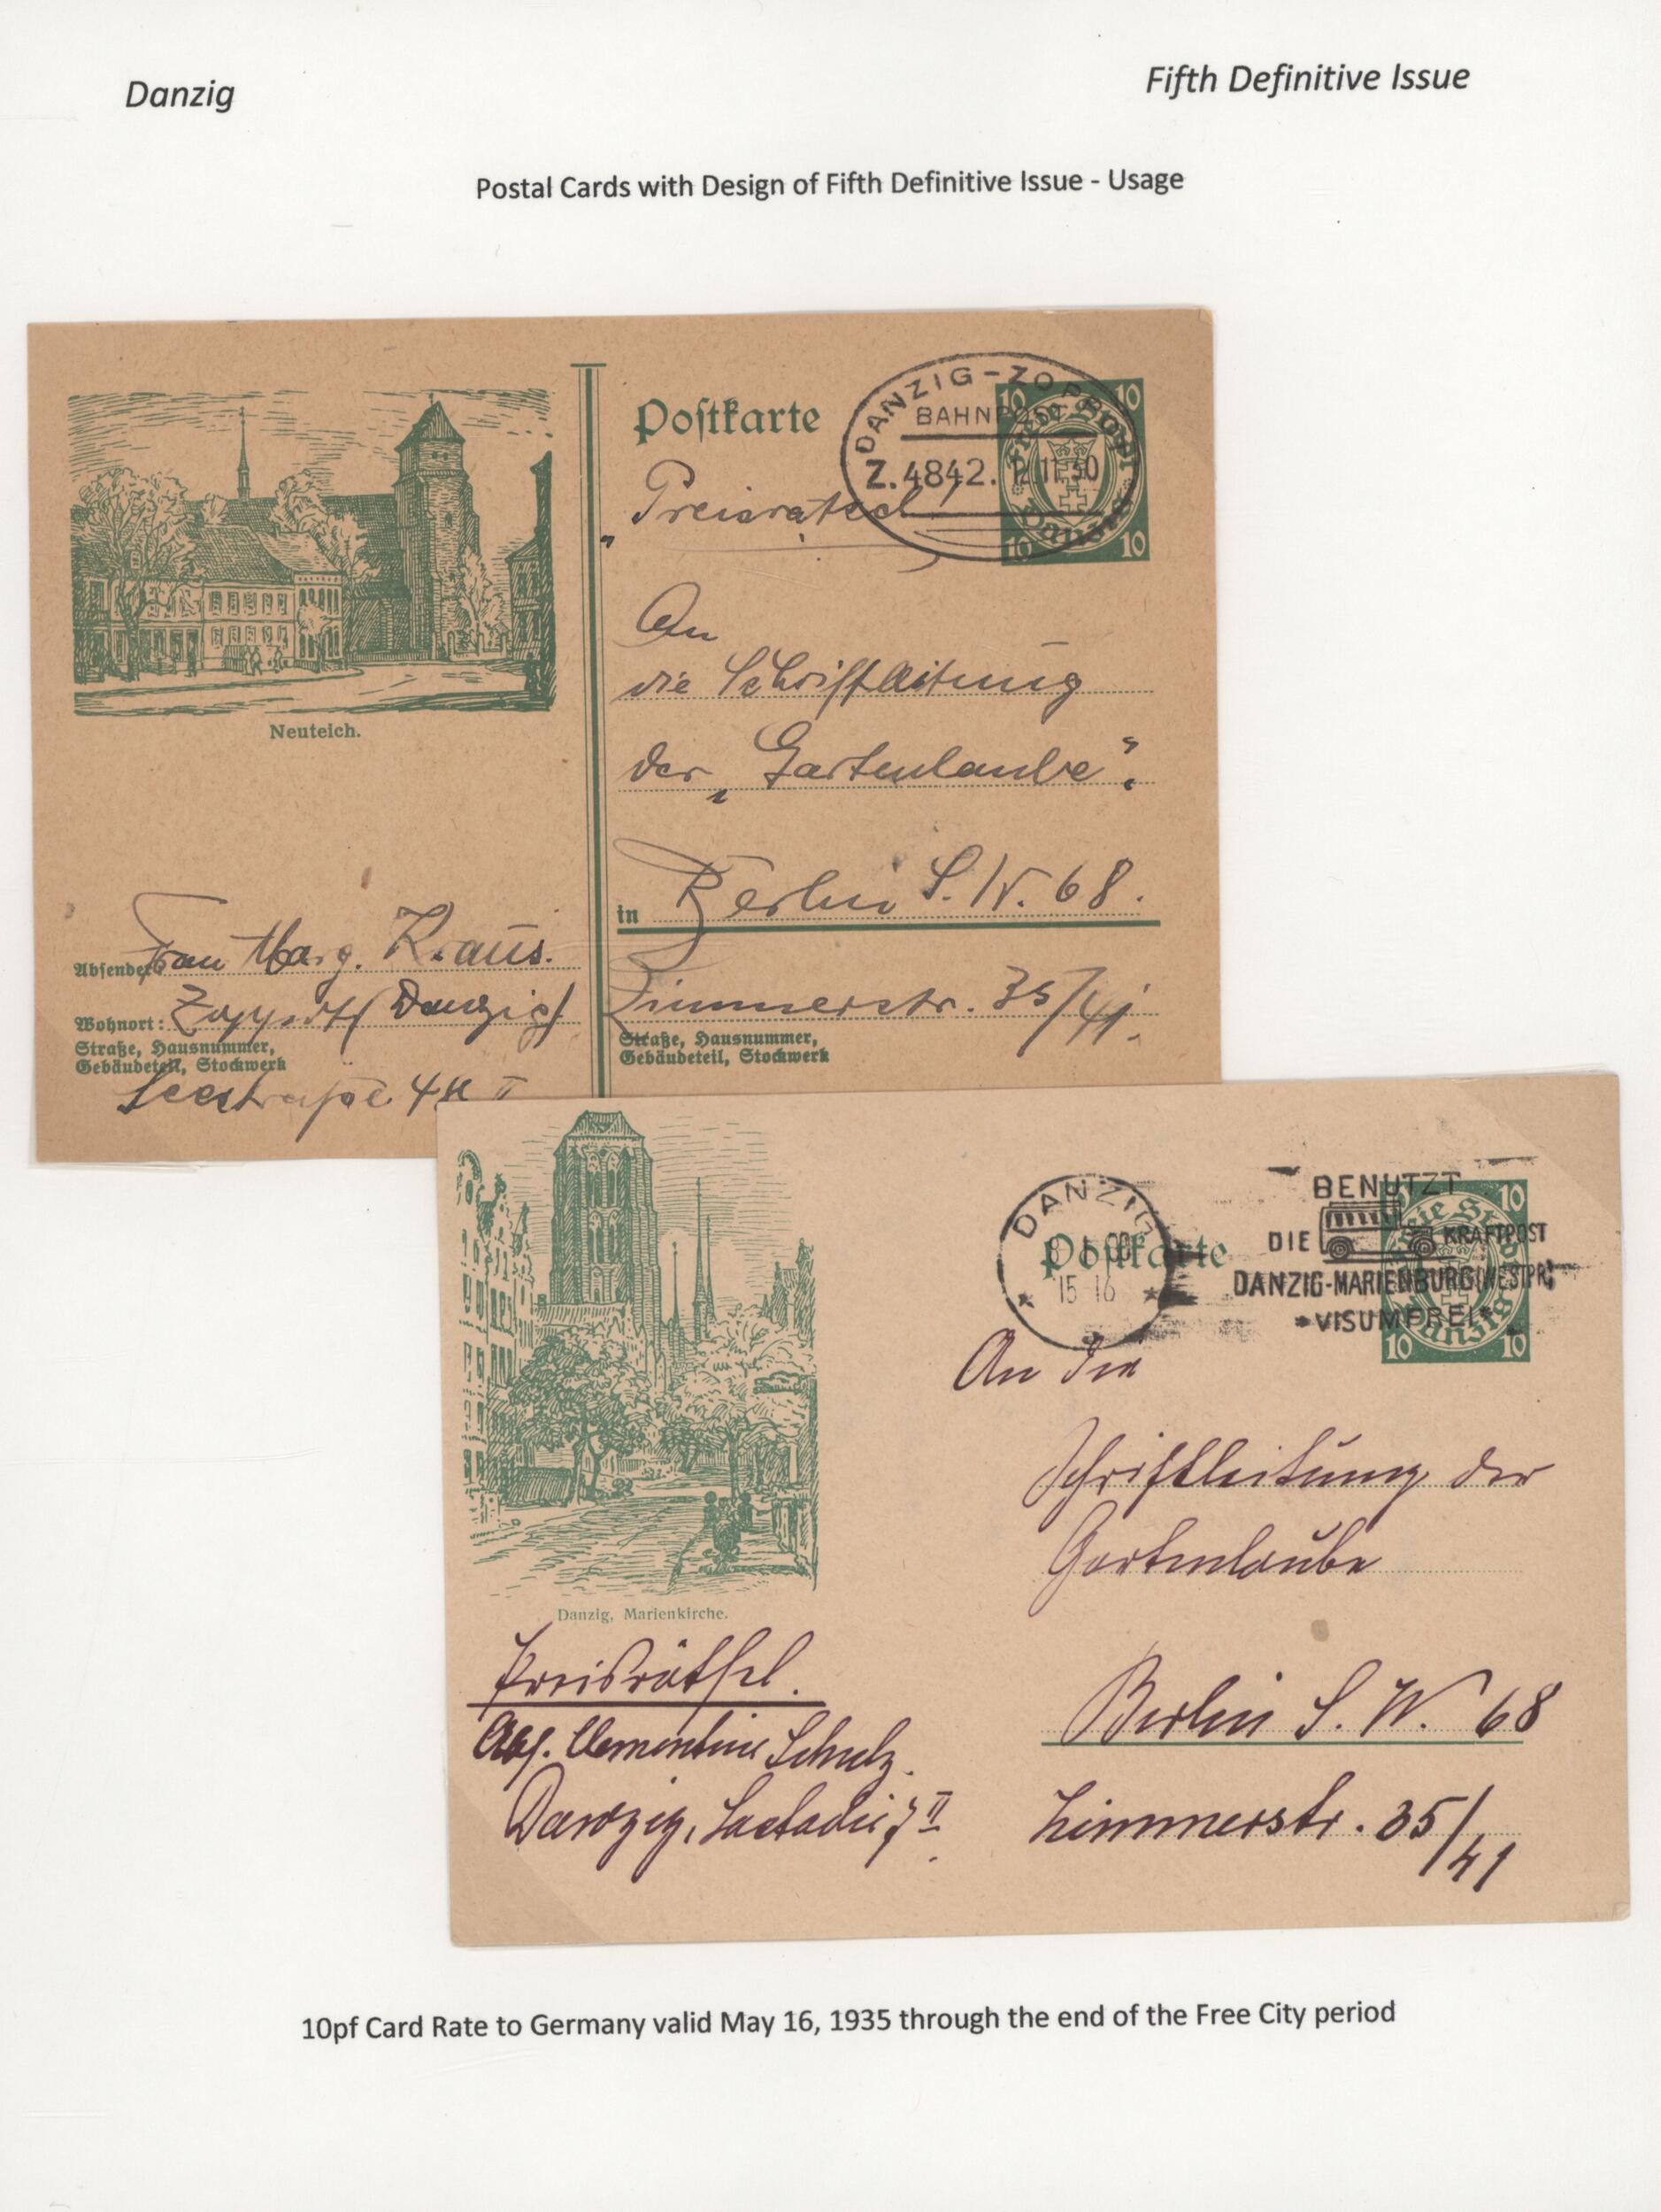 Danzig
Fifth Definitive Issue
Postal Cards with Design of Fifth Definitive Issue - Usage
Postkarte
DANZIG-ZOPPOT
BAHNPOST
Z.4842. 12.11.30
10 10
Freie Stadt
Danzig
10 10
"Preisrätsel"
An
die Schriftleitung
der „Gartenlaube".
in Berlin S.W. 68.
Zimmerstr. 35/41.
Straße, Hausnummer,
Gebäudeteil, Stockwerk
Neuteich.
Absender: Frau Marg. Kraus.
Wohnort: Zoppot (Danzig)
Straße, Hausnummer,
Gebäudeteil, Stockwerk
Seestraße 44 II
DANZIG
15-16
Postkarte
BENUTZT
DIE KRAFTPOST
DANZIG-MARIENBURG (WESTPR)
*VISUMFREI*
10
Danzig
10 10
An die
Schriftleitung der
Gartenlaube
Berlin S. W. 68
Zimmerstr. 35/41
Danzig, Marienkirche.
Preisräthsel.
Abs. Clementine Schulz.
Danzig, Lastadie II
10pf Card Rate to Germany valid May 16, 1935 through the end of the Free City period